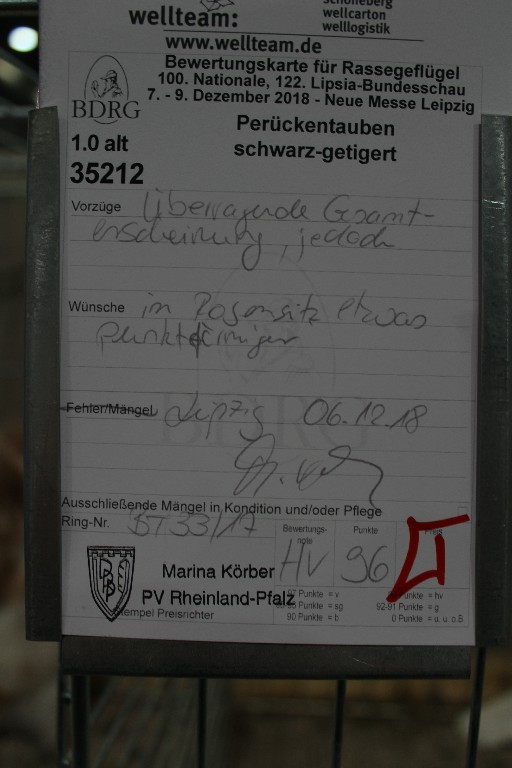 schöneberg
wellteam: wellcarton
welllogistik
www.wellteam.de
Bewertungskarte für Rassegeflügel
100. Nationale, 122. Lipsia-Bundesschau
7. - 9. Dezember 2018 - Neue Messe Leipzig
BDRG
Perückentauben
schwarz-getigert
1.0 alt
35212
Vorzüge Überragende Gesamt-
erscheinung, jedoch
Wünsche im Rosensitz etwas
punktförmiger
Fehler/Mängel Leipzig 06.12.18
BDRG
Ausschließende Mängel in Kondition und/oder Pflege
Ring-Nr. BT 33/17
Bewertungs-
note HV
Punkte 96
Preis
Marina Körber
PV Rheinland-Pfalz
Stempel Preisrichter
97 Punkte = v
sg
90 Punkte = b
Punkte = hv
92-91 Punkte = g
0 Punkte = u. u. o.B